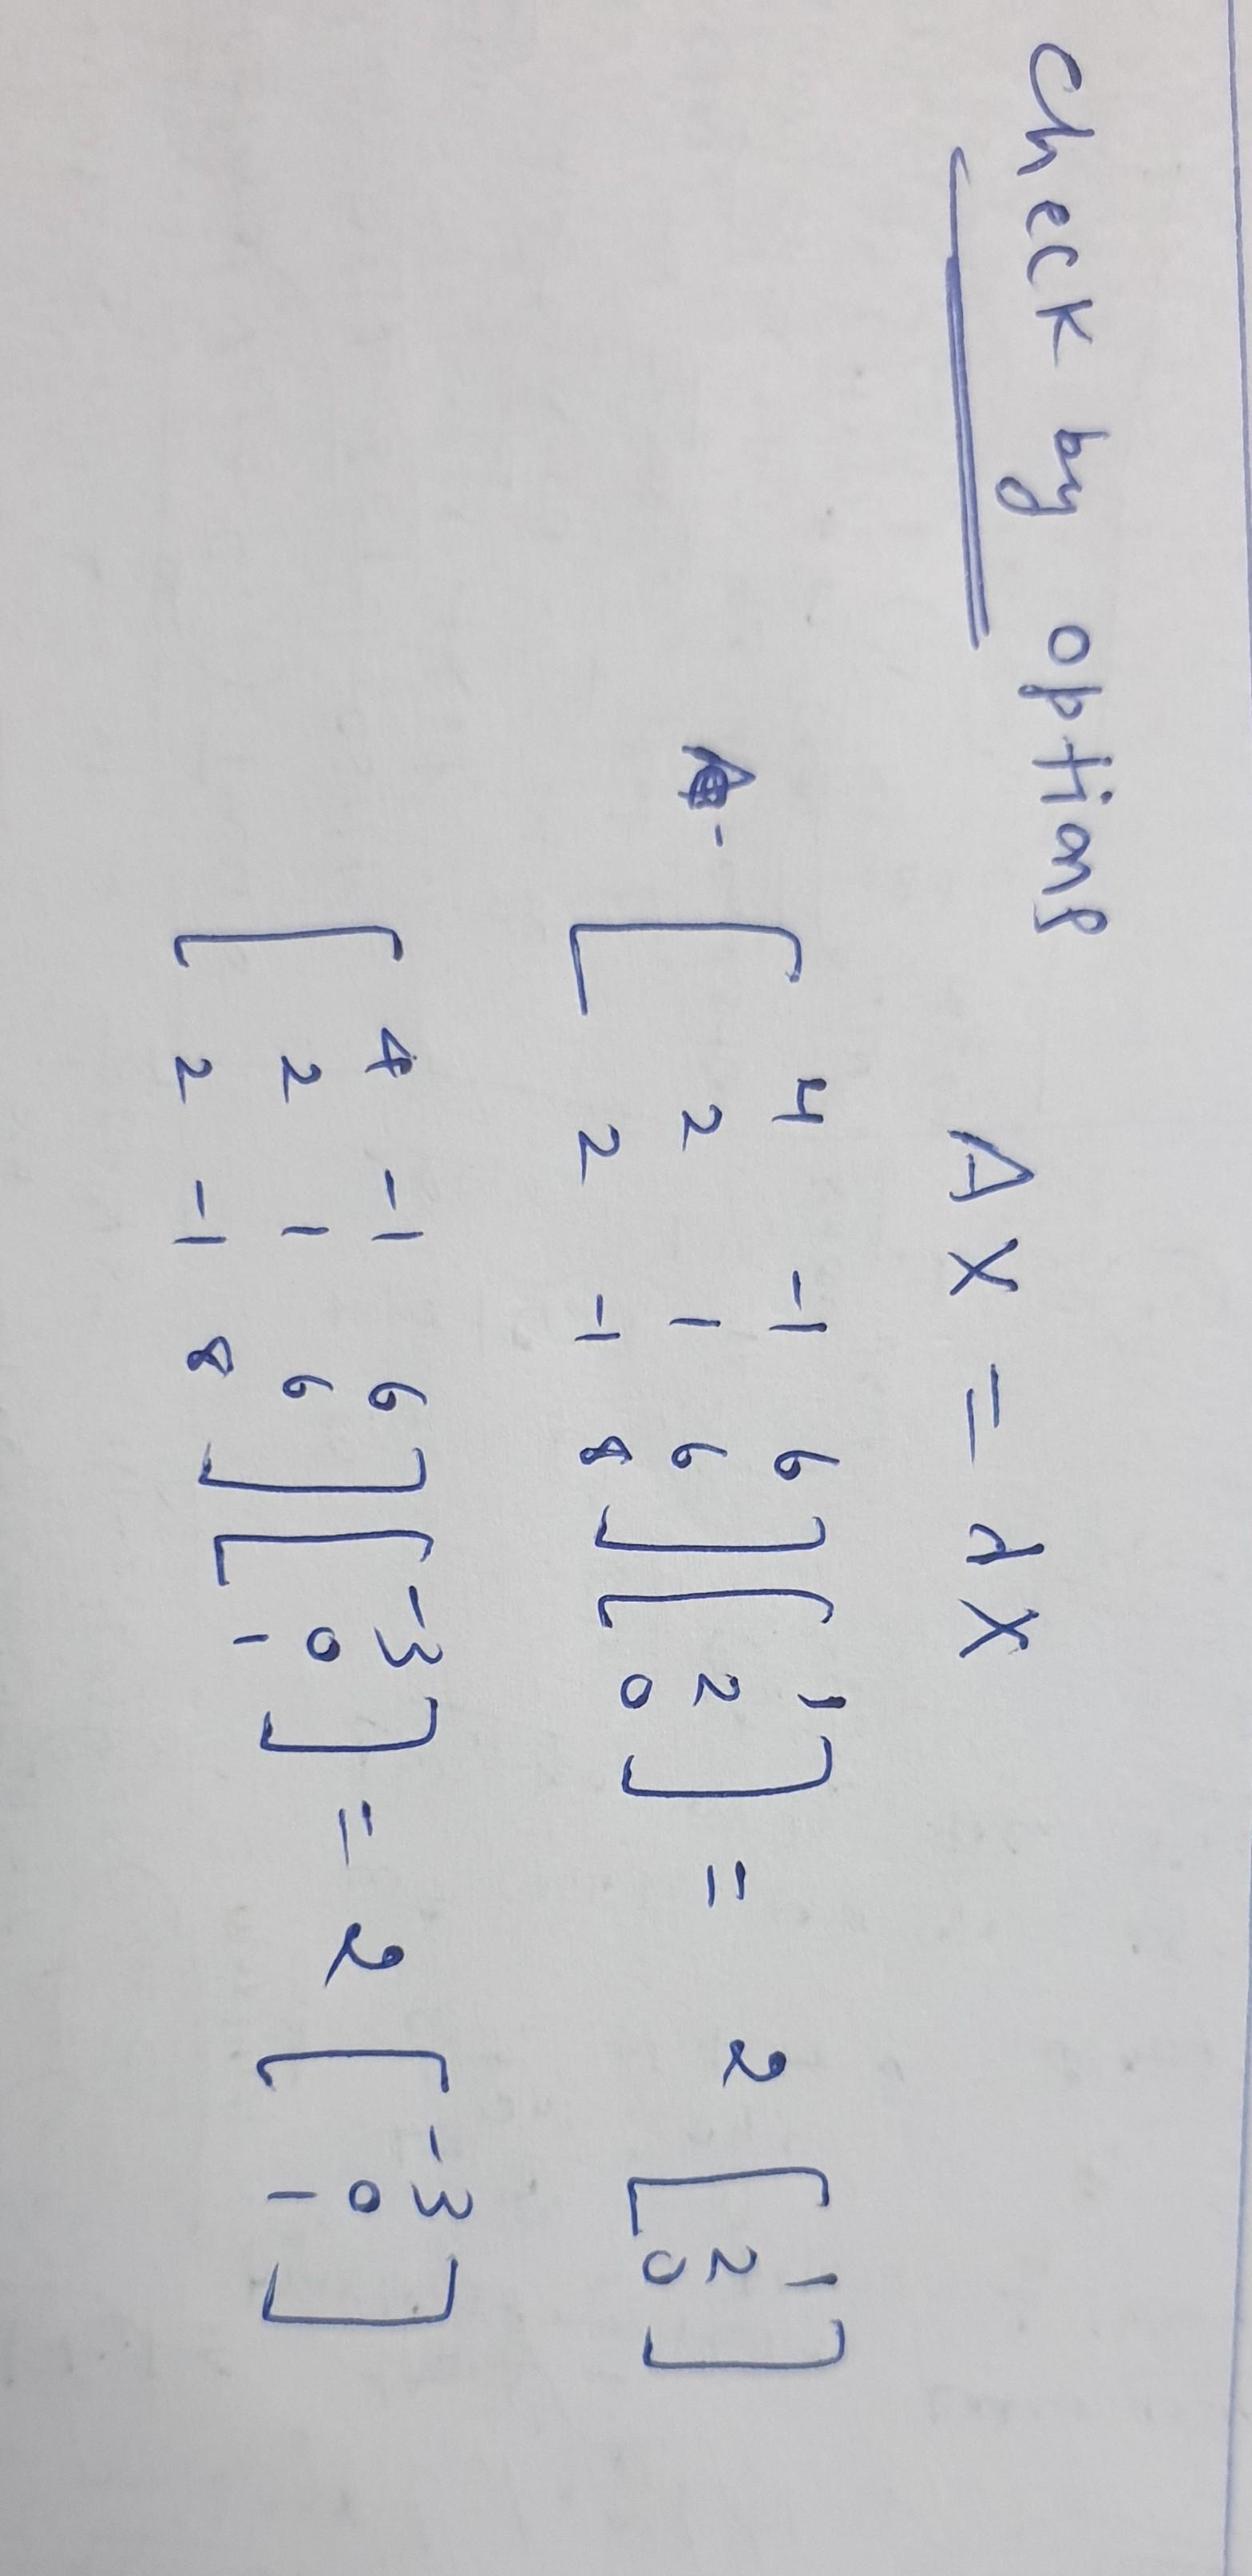 Check by options
AX = λX
A- [4 -1 6
2 1 6
2 -1 8] [1
2
0] = 2 [1
2
0]
[4 -1 6
2 1 6
2 -1 8] [-3
0
1] = 2 [-3
0
1]